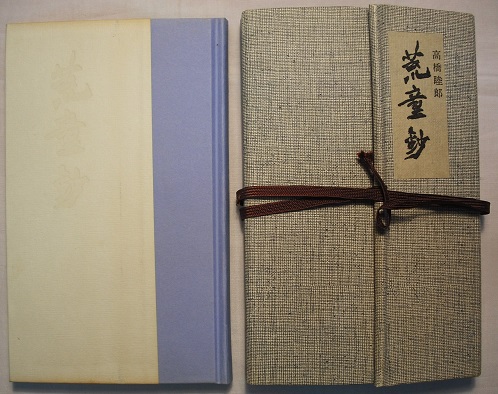 高橋睦郎
荒童鈔
荒童鈔